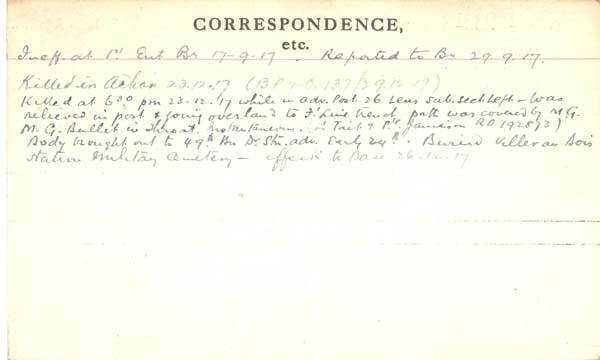 CORRESPONDENCE,
etc.
Ineff. at 1st Ent Bn 17-9-17 - Reported to Bn 29.9.17.
Killed in Action 23.12.17 (B.P 2 O. 137/29.12.17)
Killed at 6 30 pm 23.12.17 while in adv. Post 26 Lens sub. sect. Left - was
relieved in post & going overland to F' Line trench path was covered by M.G.
M.G. Bullet in throat. Instantaneous. Jamieson RD 192893)
Body brought out to 49th Bn Dr. Stn. adv. Early 24th. Buried Viller au Bois
Station Military Cemetery - effects to Base 26-12-17